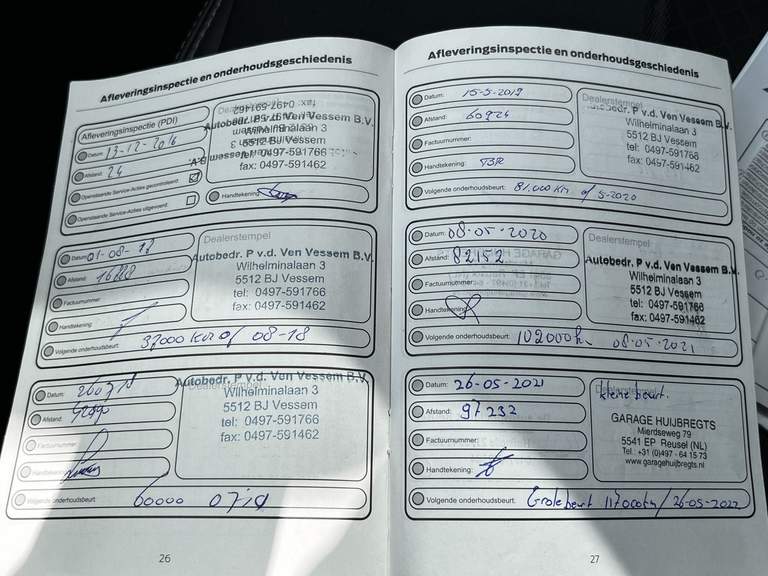 Afleveringsinspectie en onderhoudsgeschiedenis
Afleveringsinspectie (PDI)
Datum: 13-12-2016
Afstand: 24
Openstaande Service-Acties gecontroleerd
Openstaande Service-Acties uitgevoerd
fax: 0497-591462
Autobedr. P v.d. Ven Vessem B.V.
Wilhelminalaan 3
5512 BJ Vessem
tel: 0497-591766
fax: 0497-591462
Handtekening:
Datum: 01-08-17
Afstand:
Factuurnummer:
Handtekening:
Dealerstempel
Autobedr. P v.d. Ven Vessem B.V.
Wilhelminalaan 3
5512 BJ Vessem
tel: 0497-591766
fax: 0497-591462
Volgende onderhoudsbeurt: 37000 km of 08-18
Datum:
Afstand:
Factuurnummer:
Handtekening:
Autobedr. P v.d. Ven Vessem B.V.
Dealerstempel
Wilhelminalaan 3
5512 BJ Vessem
tel: 0497-591766
fax: 0497-591462
Volgende onderhoudsbeurt: 60000
26
Afleveringsinspectie en onderhoudsgeschiedenis
Datum: 15-5-2019
Afstand: 60924
Factuurnummer:
Handtekening:
Dealerstempel
Autobedr. P v.d. Ven Vessem B.V.
Wilhelminalaan 3
5512 BJ Vessem
tel: 0497-591766
fax: 0497-591462
Volgende onderhoudsbeurt: 81.000 km of 5-2020
Datum: 08-05-2020
Afstand: 82152
Factuurnummer:
Handtekening:
Dealerstempel
Autobedr. P v.d. Ven Vessem B.V.
Wilhelminalaan 3
5512 BJ Vessem
tel: 0497-591766
fax: 0497-591462
Volgende onderhoudsbeurt: 102000 km 08-05-2021
Datum: 26-05-2021
Afstand: 97232
Factuurnummer:
Handtekening:
Dealerstempel
kleine beurt.
GARAGE HUIJBREGTS
Mierdseweg 79
5541 EP Reusel (NL)
Tel.: +31 (0)497 - 64 15 73
www.garagehuijbregts.nl
Volgende onderhoudsbeurt: Grote beurt 117000km/26-05-2022
27